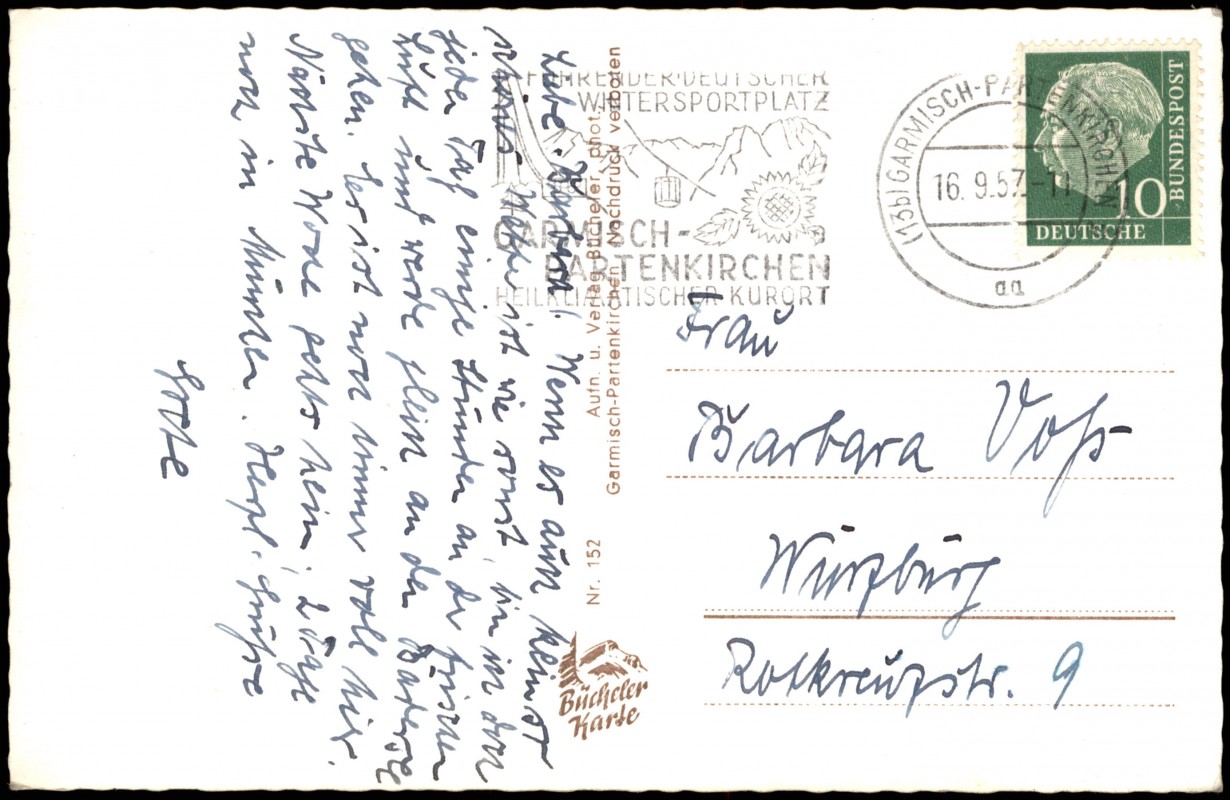 Liebe Barbara! Wenn es auch kein so
schönes Wetter ist wie sonst, bin ich doch
jeden Tag einige Stunden an der frischen
Luft und werde fleißig an den
gehen. Es ist noch immer voll hier.
Nächste Woche gehts heim, 2 Tage
noch in München. Herzl. Grüße
Lotte
FÜHRENDER DEUTSCHER
WINTERSPORTPLATZ
GARMISCH-
PARTENKIRCHEN
HEILKLIMATISCHER KURORT
(13b) GARMISCH-PARTENKIRCHEN
16. 9. 57. -11
aa
10
DEUTSCHE
BUNDESPOST
Nr. 152 Aufn. u. Verlag Bücheler, phot.
Garmisch-Partenkirchen Nachdruck verboten
Bücheler
Karte
Frau
Barbara Voß
Würzburg
Rotkreuzstr. 9